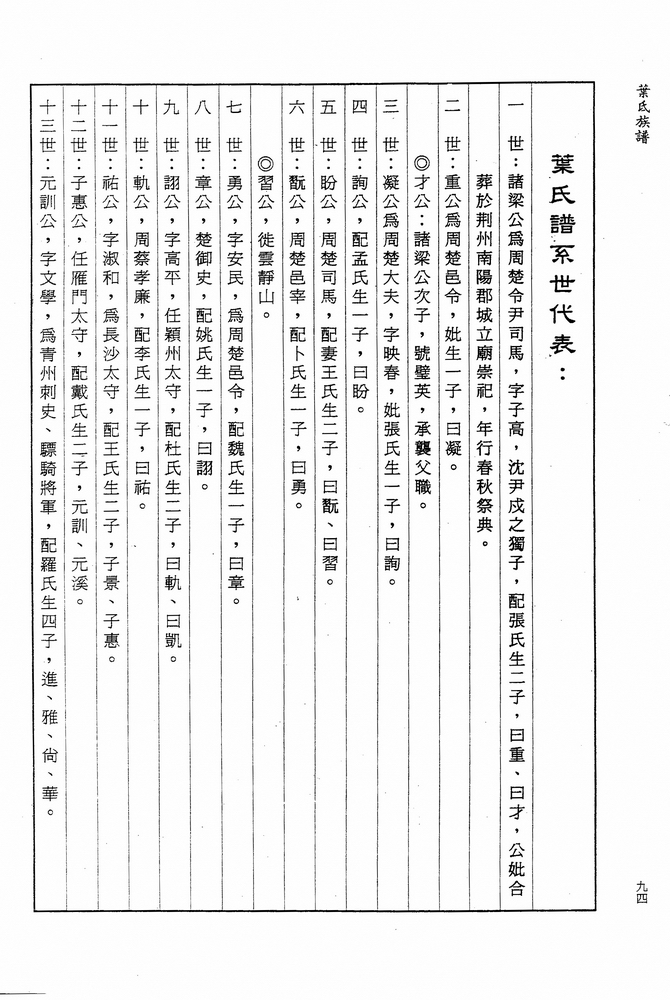 葉氏族譜
葉氏譜系世代表：
一世：諸梁公爲周楚令尹司馬，字子高，沈尹戍之獨子，配張氏生二子，曰重、曰才，公妣合
葬於荆州南陽郡城立廟崇祀，年行春秋祭典。
二世：重公爲周楚邑令，妣生一子，曰凝。
◎才公：諸梁公次子，號璧英，承襲父職。
三世：凝公爲周楚大夫，字映春，妣張氏生一子，曰詢。
四世：詢公，配孟氏生一子，曰盼。
五世：盼公，周楚司馬，配妻王氏生二子，曰翫、曰習。
六世：翫公，周楚邑宰，配卜氏生一子，曰勇。
◎習公，徙雲靜山。
七世：勇公，字安民，爲周楚邑令，配魏氏生一子，曰章。
八世：章公，楚御史，配姚氏生一子，曰詡。
九世：詡公，字高平，任穎州太守，配杜氏生二子，曰軌、曰凱。
十世：軌公，周蔡孝廉，配李氏生一子，曰祐。
十一世：祐公，字淑和，爲長沙太守，配王氏生二子，子景、子惠。
十二世：子惠公，任雁門太守，配戴氏生二子，元訓、元溪。
十三世：元訓公，字文學，爲青州刺史、驃騎將軍，配羅氏生四子，進、雅、尙、華。
九四